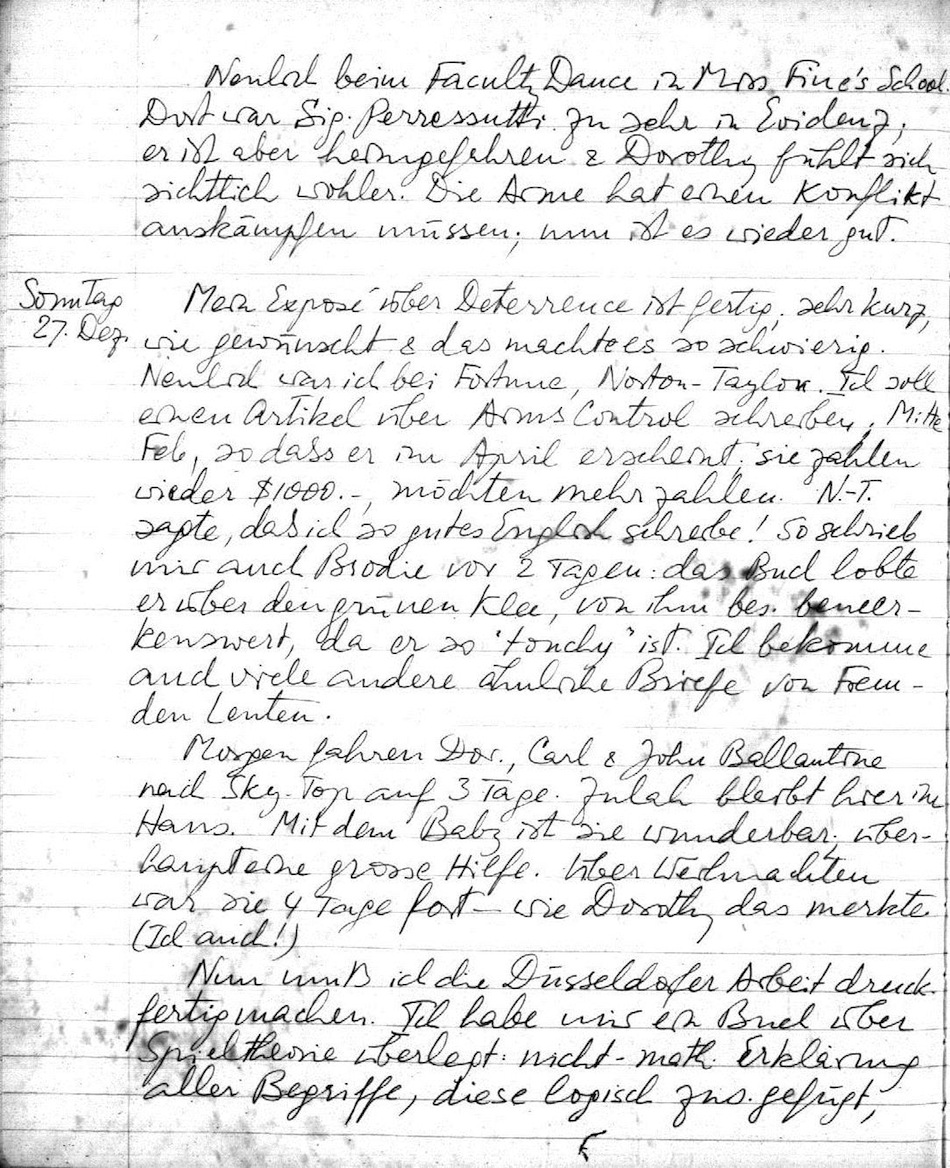 Neulich beim Faculty Dance in Miss Fine's School.
Dort war Sig. Perressutti zu sehr in Evidenz;
er ist aber heimgefahren & Dorothy fühlt sich
sichtlich wohler. Die Arme hat einen Konflikt
auskämpfen müssen; nun ist es wieder gut.
Sonntag
27. Dez.
Mein Exposé über Deterrence ist fertig, sehr kurz,
wie gewünscht & das machte es so schwierig.
Neulich war ich bei Fortune, Norton-Taylor. Ich soll
einen Artikel über Arms Control schreben, Mitte
Feb, so dass er im April erscheint; sie zahlen
wieder $1000.-, möchten mehr zahlen. N.-T.
sagte, daß ich so gutes Englisch schreibe! So schrieb
mir auch Brodie vor 2 Tagen: das Buch lobte
er über den grünen Klee, von ihm bes. bemer-
kenswert, da er so "touchy" ist. Ich bekomme
auch viele andere ähnliche Briefe von Frem-
den Leuten.
Morgen fahren Dor., Carl & John Ballantine
nach Sky-Top auf 3 Tage. Zulah bleibt hier im
Haus. Mit dem Baby ist sie wunderbar, über-
haupt eine grosse Hilfe. Über Weihnachten
war sie 4 Tage fort – wie Dorothy das merkte.
(Ich auch!)
Nun muß ich die Düsseldorfer Arbeit druck-
fertig machen. Ich habe mir ein Buch über
Spieltheorie überlegt: nicht-math. Erklärung
aller Begriffe, diese logisch zus. gefügt,